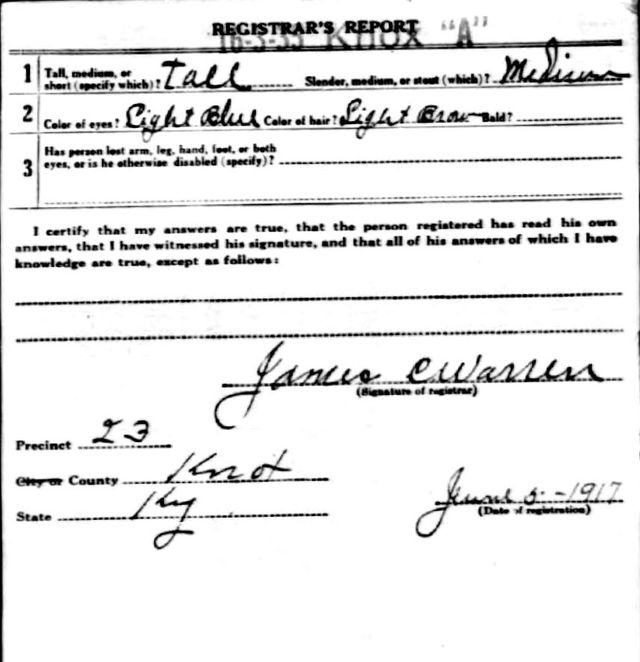 REGISTRAR'S REPORT
16-3-33 KNOX "A"
1 Tall, medium, or short (specify which)? Tall Slender, medium, or stout (which)? Medium
2 Color of eyes? Light Blue Color of hair? Light Brow Bald?
3 Has person lost arm, leg, hand, foot, or both
eyes, or is he otherwise disabled (specify)?
I certify that my answers are true, that the person registered has read his own
answers, that I have witnessed his signature, and that all of his answers of which I have
knowledge are true, except as follows:
James C Warren
(Signature of registrar)
Precinct 23
City or County Knox
State Ky
June 5 - 1917
(Date of registration)